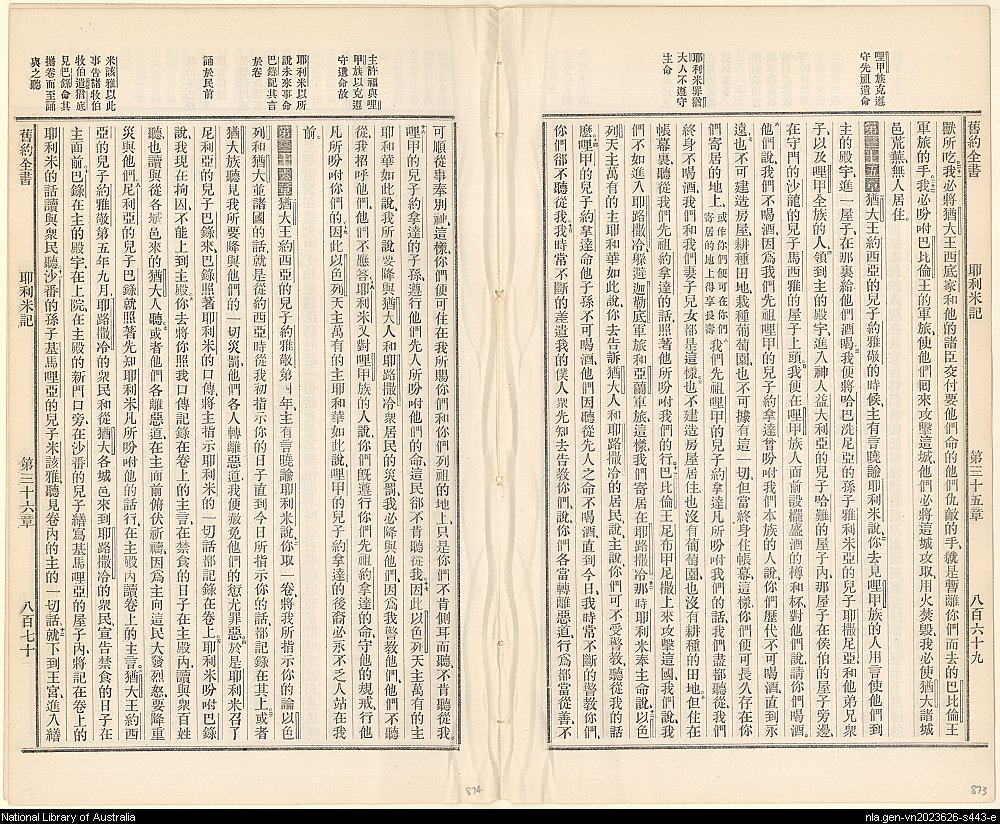 哩甲族克遵
守先祖遺命
耶利米罪猶
大人不遵守
主命
舊約全書 耶利米記 第三十五章 八百六十九
獸所吃我必將猶大王西底家和他的諸臣交付要他們命的他們仇敵的手就是暫離你們而去的巴比倫王
軍旅的手我必吩咐巴比倫王的軍旅使他們回來攻擊這城他們必將這城攻取用火焚毀我必使猶大諸城
邑荒蕪無人居住
第三十五章猶大王約西亞的兒子約雅敬的時候主有言曉諭耶利米說你去見哩甲族的人用言使他們到
主的殿宇進一屋子在那裏給他們酒喝我便將哈巴洗尼亞的孫子雅利米亞的兒子耶撒尼亞和他弟兄衆
子以及哩甲全族的人領到主的殿宇進入神人益大利亞的兒子哈難的屋子內那屋子在侯伯的屋子旁邊
在守門的沙龍的兒子馬西雅的屋子上頭我便在哩甲族人面前設擺盛酒的樽和杯對他們說請你們喝酒
他們說我們不喝酒因爲我們先祖哩甲的兒子約拿達曾吩咐我們本族的人說你們歷代不可喝酒直到永
遠也不可建造房屋耕種田地栽種葡萄園也不可據有這一切但當終身住帳幕這樣你們便可長久存在你
們寄居的地上或作你們便可在你們寄居的地上得享長壽我們先祖哩甲的兒子約拿達凡所吩咐我們的話我們盡都聽從我們
終身不喝酒我們和我們妻子兒女都是這樣也不建造房屋居住也沒有葡萄園也沒有耕種的田地但住在
帳幕裏聽從我們先祖約拿達的話照著他所吩咐我們的行巴比倫王尼布甲尼撒上來攻擊這國我們說
不如進入耶路撒冷躲避迦勒底軍旅和亞蘭軍旅這樣我們寄居在耶路撒冷那時耶利米奉主命說以色
列天主萬有的主耶和華如此說你去告訴猶大人和耶路撒冷的居民說主說你們可不受警敎聽從我的話
麽哩甲的兒子約拿達命他子孫不可喝酒他們因聽從先人之命不喝酒直到今日我時常不斷的警敎你們
你們卻不聽從我我時常不斷的差遣我的僕人衆先知去告敎你們說你們各當轉離惡道行爲都當從善不
主許福與哩
甲族以克遵
守遺命故
耶利米以所
說未來事命
巴錄記其言
於卷
誦於民前
米該雅以此
事吿諸牧伯
牧伯遣猶底
見巴錄命其
攜卷而至誦
與之聽
可順從事奉別神這樣你們便可住在我所賜你們和你列祖的地上只是你們不肯側耳而聽不肯聽從我
哩甲的兒子約拿達的子孫遵行他們先人所吩咐他們的命這民卻不肯聽從我因此以色列天主萬有的主
耶和華如此說我所說要降與猶大人和耶路撒冷衆居民的災罰我必降與他們因爲我警敎他們他們不聽
從我招呼他們他們不應答耶利米又對哩甲族的人說你們旣遵行你們先祖約拿達的命守他的規戒行他
凡所吩咐你們的因此以色列天主萬有的主耶和華如此說哩甲的兒子約拿達的後裔必永不乏人站在我
前
第三十六章猶大王約西亞的兒子約雅敬第四年主有言曉諭耶利米說你取一卷將我所指示你的論以色
列和猶大並諸國的話就是從約西亞時從我初指示你的日子直到今日所指示你的話都記錄在其上或者
猶大族聽見我所要降與他們的一切災罰他們各人轉離惡道我便赦免他們的愆尤罪惡於是耶利米召了
尼利亞的兒子巴錄來巴錄照著耶利米的口傳將主指示耶利米的一切話都記錄在卷上耶利米吩咐巴錄
說我現在拘囚不能上到主殿你去將你照我口傳記錄在卷上的主言在禁食的日子在主殿內讀與衆百姓
聽也讀與從各城邑來的猶大人聽或者他們各離惡道在主面前俯伏祈禱因爲主向這民大發烈怒要降重
災與他們尼利亞的兒子巴錄就照著先知耶利米凡所吩咐他的話行在主殿內讀卷上的主言猶大王約西
亞的兒子約雅敬第五年九月耶路撒冷的衆民和從猶大各城邑來到耶路撒冷的衆民宣告禁食的日子在
主面前巴錄在主的殿宇在上院在主殿的新門口旁在沙番的兒子繕寫基馬哩亞的屋子內將記在卷上的
耶利米的話讀與衆民聽沙番的孫子基馬哩亞的兒子米該雅聽見卷內的主的一切話就下到王宮進入繕
舊約全書 耶利米記 第三十六章 八百七十
874
873
National Library of Australia
nla.gen-vn2023626-s443-e